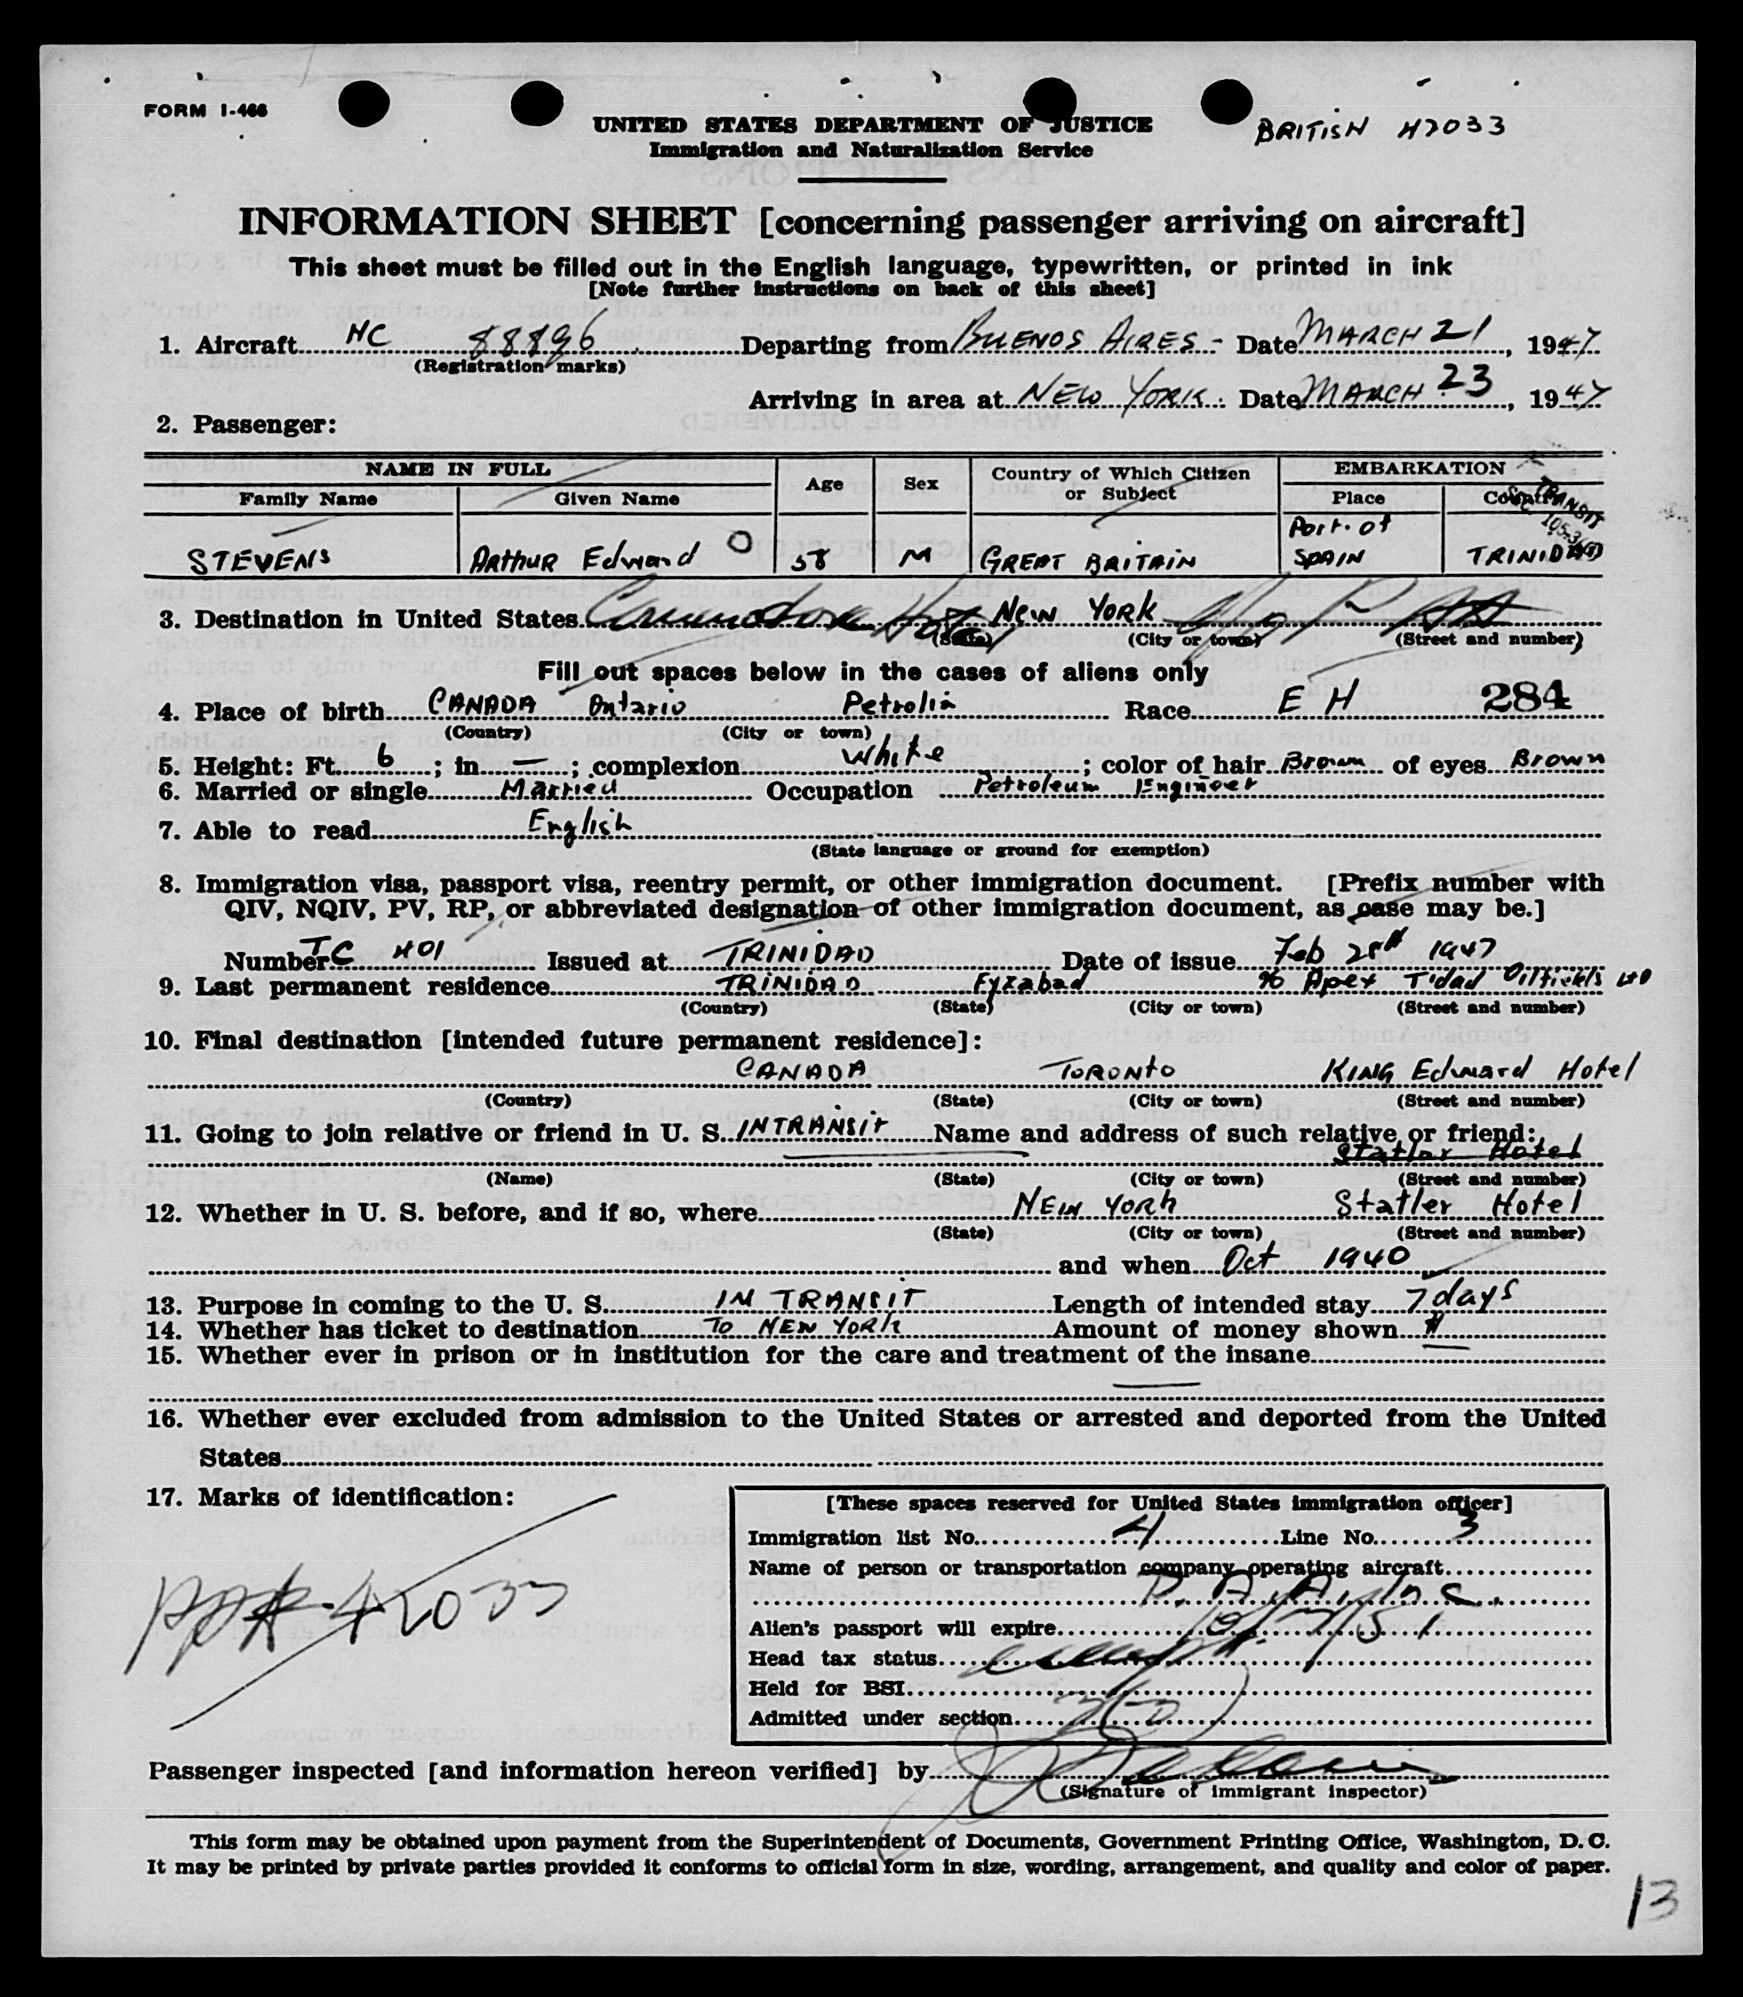 FORM I-466
UNITED STATES DEPARTMENT OF JUSTICE
Immigration and Naturalization Service
BRITISH
INFORMATION SHEET [concerning passenger arriving on aircraft]
This sheet must be filled out in the English language, typewritten, or printed in ink
[Note further instructions on back of this sheet]
1. Aircraft NC 88896 Departing from BUENOS AIRES - Date MARCH 21, 1947
(Registration marks)
Arriving in area at NEW YORK. Date MARCH 23, 1947
2. Passenger:
NAME IN FULL Age Sex Country of Which Citizen or Subject EMBARKATION
Family Name Given Name Place Country
TRANSIT
STEVENS ARTHUR Edward 58 M GREAT BRITAIN Port. of SPAIN TRINIDAD
3. Destination in United States Commodore Hotel New York
(State) (City or town) (Street and number)
Fill out spaces below in the cases of aliens only
4. Place of birth CANADA Ontario Petrolia Race E H 284
(Country) (City or town)
5. Height: Ft. 6; in. —; complexion White; color of hair Brown of eyes Brown
6. Married or single Married Occupation Petroleum Engineer
7. Able to read English
(State language or ground for exemption)
8. Immigration visa, passport visa, reentry permit, or other immigration document. [Prefix number with
QIV, NQIV, PV, RP, or abbreviated designation of other immigration document, as case may be.]
Number TC 401 Issued at TRINIDAD Date of issue Feb 28th 1947
9. Last permanent residence TRINIDAD Fyzabad % Apex T'dad Oilfields LTD
(Country) (State) (City or town) (Street and number)
10. Final destination [intended future permanent residence]:
CANADA TORONTO KING Edward Hotel
(Country) (State) (City or town) (Street and number)
11. Going to join relative or friend in U. S. INTRANSIT Name and address of such relative or friend:
Statler Hotel
(Name) (State) (City or town) (Street and number)
12. Whether in U. S. before, and if so, where NEW YORK Statler Hotel
(State) (City or town) (Street and number)
and when Oct 1940
13. Purpose in coming to the U. S. IN TRANSIT Length of intended stay 7 days
14. Whether has ticket to destination To NEW YORK Amount of money shown $
15. Whether ever in prison or in institution for the care and treatment of the insane
—
16. Whether ever excluded from admission to the United States or arrested and deported from the United
States
17. Marks of identification:
[These spaces reserved for United States immigration officer]
Immigration list No. 4 Line No. 3
Name of person or transportation company operating aircraft
P. A. A. Inc.
Alien's passport will expire
Head tax status
Held for BSI
Admitted under section
Passenger inspected [and information hereon verified] by
(Signature of immigrant inspector)
This form may be obtained upon payment from the Superintendent of Documents, Government Printing Office, Washington, D. C.
It may be printed by private parties provided it conforms to official form in size, wording, arrangement, and quality and color of paper.
13